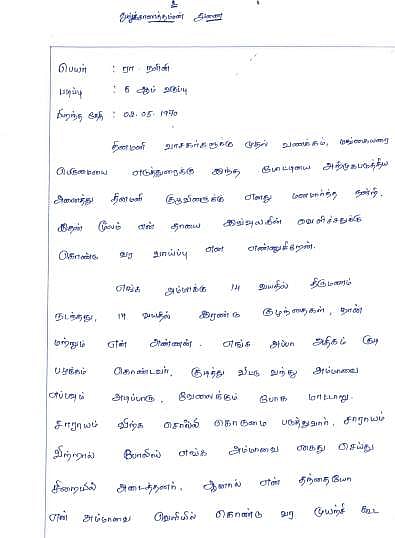 உ
அங்காளாத்தம்மன் துணை
பெயர் : ரா. நளினி
படிப்பு : 6 ஆம் வகுப்பு
பிறந்த தேதி : 02.05.1970
தினமணி வாசகர்களுக்கு முதல் வணக்கம், மங்கையரை
பெருமையை எடுத்துரைக்கும் இந்த போட்டியை அறிமுகபடுத்திய
அனைத்து தினமணி குழுவினருக்கும் எனது மனமார்ந்த நன்றி.
இதன் மூலம் என் தாயை இவ்வுலகின் வெளிச்சத்துக்கு
கொண்டு வர வாய்ப்பு என எண்ணுகிறேன்.
எங்க அம்மாக்கு 14 வயதில் திருமணம்
நடந்தது, 19 வயதில் இரண்டு குழந்தைகள், நான்
மற்றும் என் அண்ணன். எங்க அப்பா அதிகம் குடி
பழக்கம் கொண்டவர், குடித்து வீட்டு வந்து அம்மாவை
எப்பவும் அடிப்பாரு, வேலைக்கும் போக மாட்டாரு.
சாராயம் விற்க சொல்லி கொடுமை படுத்துவார், சாராயம்
விற்றால் போலிஸ் எங்க அம்மாவை கைது செய்து
சிறையில் அடைத்தனர், ஆனால் என் தந்தையோ
என் அம்மாவை வெளியில் கொண்டு வர முயற்சி கூட